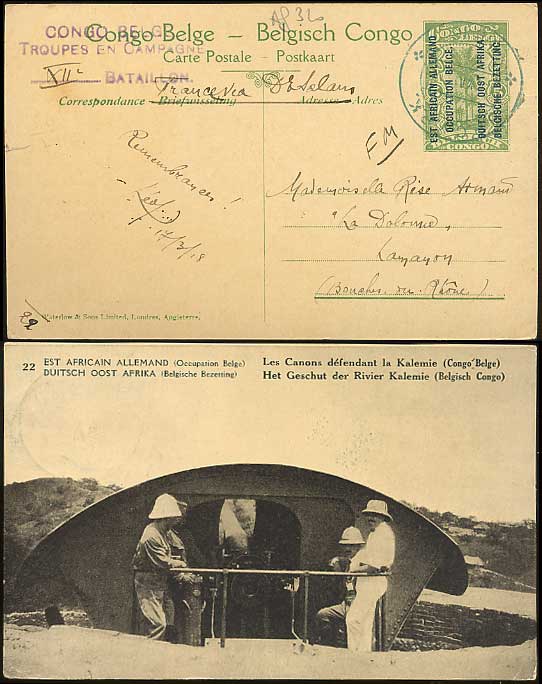 CONGO BELGE
TROUPES EN CAMPAGNE
XIIe BATAILLON.
AP 32
Congo Belge – Belgisch Congo
Carte Postale - Postkaart
France via D'Eslam
Correspondance - Briefwisseling
Adresse - Adres
EST AFRICAIN ALLEMAND
OCCUPATION BELGE.
DUITSCH OOST AFRIKA
BELGISCHE BEZETTING.
CONGO
FM
Remembrances!
Léo
17/3/18
Mademoiselle Rose Armand
"La Dolonne,
Lamanon
(Bouches-du-Rhône)
22
Waterlow & Sons Limited, Londres, Angleterre.
22 EST AFRICAIN ALLEMAND (Occupation Belge)
DUITSCH OOST AFRIKA (Belgische Bezetting)
Les Canons défendant la Kalemie (Congo Belge)
Het Geschut der Rivier Kalemie (Belgisch Congo)